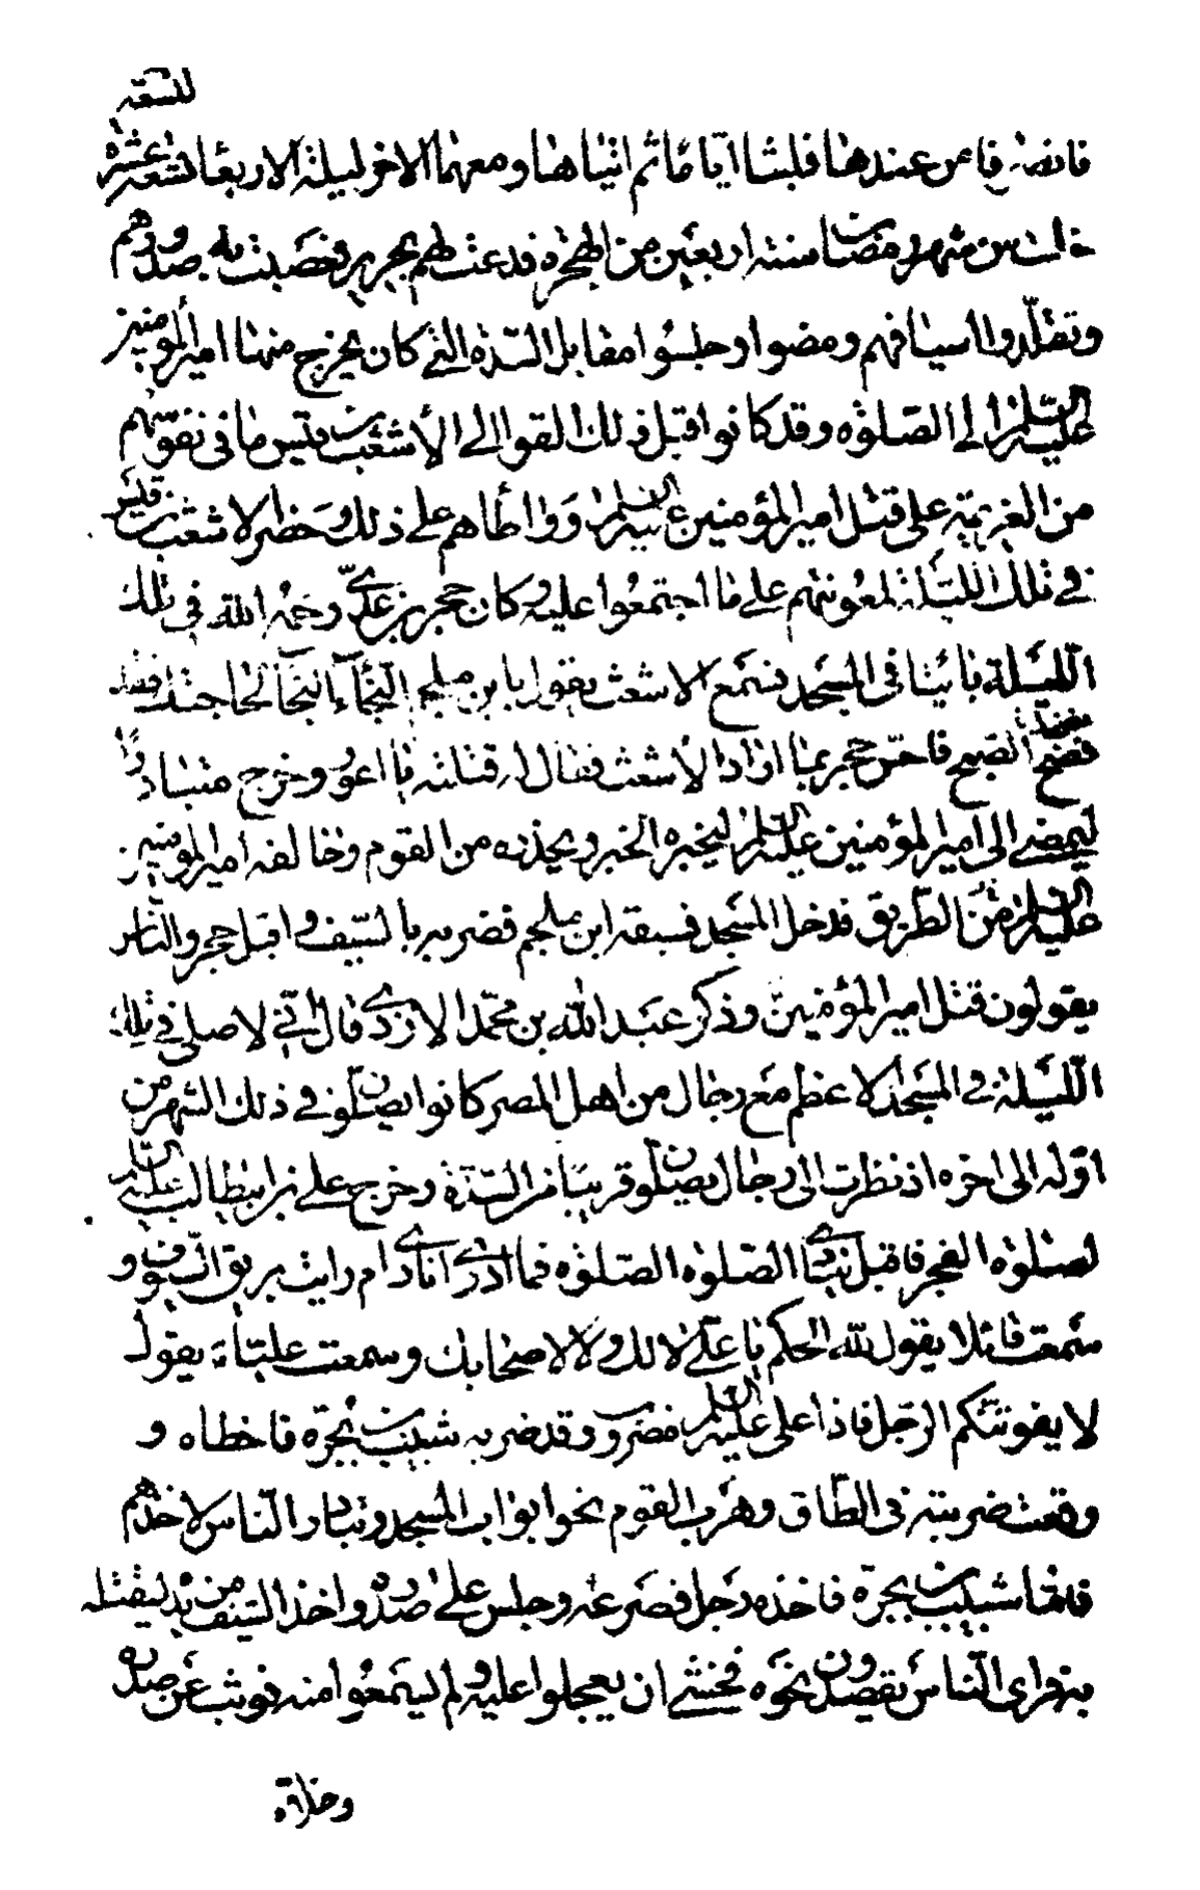 لتسعة
فانصرفا من عندها فلبثا ايّامًا ثم اتياها ومعهما الاخر ليلة الاربعا لتسعة عشرة
خلت من شهر رمضان سنة اربعين من الهجرة فدعت لهم بحرير فعصبت به صدورهم
وتقلّدوا اسيافهم ومضوا وجلسوا مقابل السّدّة التي كان يخرج منها امير المؤمنين
عليه السّلم الى الصّلوة وقد كانوا قبل ذلك القوا الى الأشعث بن قيس ما في نفوسهم
من العزيمة على قتل امير المؤمنين عليه السلم وواطأهم على ذلك وحضر الاشعث بن قيس
في تلك اللّيلة لمعونتهم على ما اجتمعوا عليه وكان حجر بن عديّ رحمه الله في تلك
اللّيلة بائتا في المسجد فسمع الاشعث يقول يا بن ملجم النّجاء النّجاء لحاجتك فقد
فضح الصّبح فاحسّ حجر بما اراد الأشعث فقال له قتلته يا اعور وخرج متبادرًا
ليمضي الى امير المؤمنين عليه السّلم ليخبره الخبر ويحذره من القوم وخالفه امير المؤمنين
عليه السّلم من الطّريق فدخل المسجد فسبقه ابن ملجم فضربه بالسّيف واقبل حجر والنّاس
يقولون قتل امير المؤمنين وذكر عبد الله بن محمّد الازدي قال انّي لاصلي في تلك
اللّيلة في المسجد الاعظم مع رجال من اهل المصر كانوا يصلّون في ذلك الشهر من
اوّله الى اخره اذ نظرت الى رجال يصلّون قريبا من السّدّة وخرج علي بن ابيطالب عليه السّلم
لصلوة الفجر فاقبل ينادي الصّلوة الصّلوة فما ادري انادى ام رايت بريق السّيوف و
سمعت قائلا يقول لله الحكم يا عليّ لا لك ولا لاصحابك وسمعت عليّا ع يقول
لا يفوتنّكم الرّجل فاذا علي عليه السّلم مضروب وقد ضربه شبيب بن بجرة فاخطاه و
وقعت ضربته في الطّاق وهرب القوم نحو ابواب المسجد وتبادر النّاس لاخذهم
فامّا شبيب بن بجرة فاخذه رجل فصرعه وجلس على صدره واخذ السّيف من يده ليقتله
به فراى النّاس يقصدون نحوه فخشي ان يعجلوا عليه ولم يسمعوا منه فوثب عن صدره
وخلاه